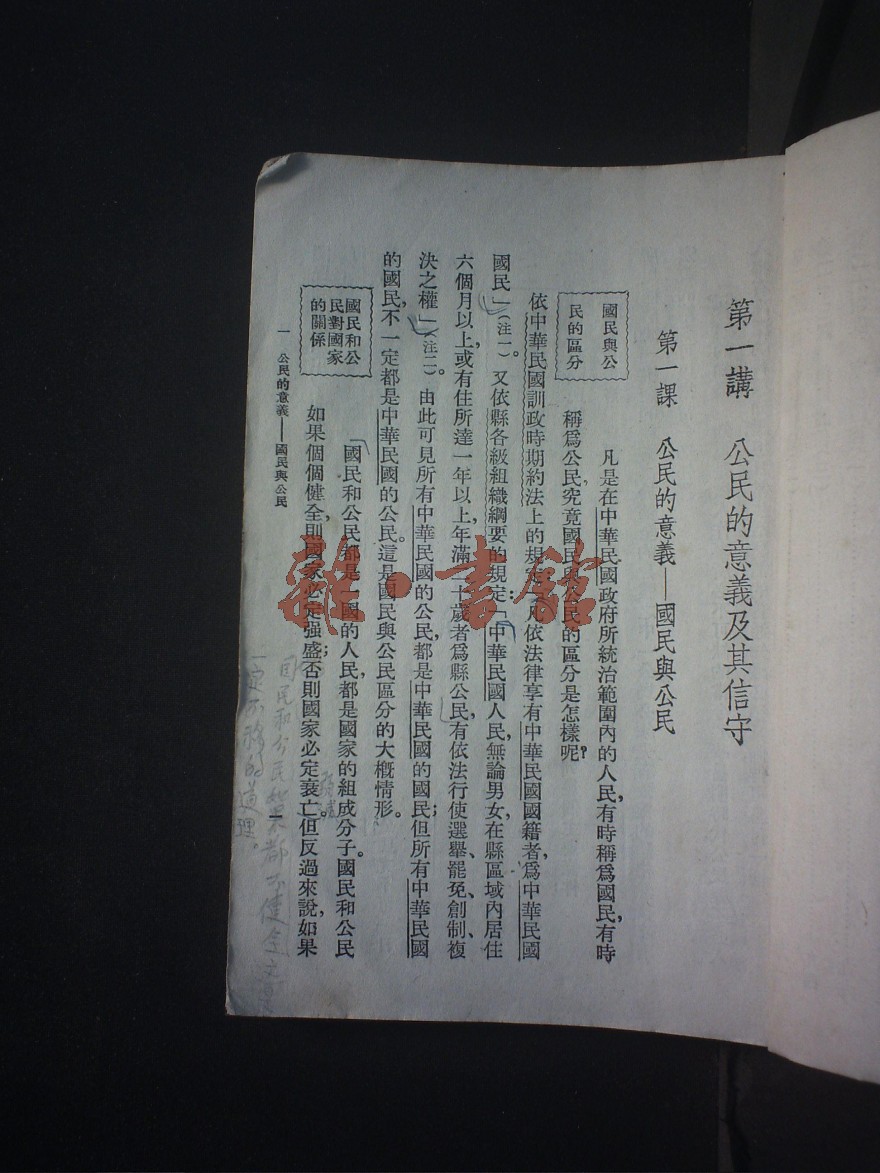 第一講　公民的意義及其信守
第一課　公民的意義——國民與公民
國民與公
民的區分
凡是在中華民國政府所統治範圍內的人民，有時稱爲國民，有時
稱爲公民，究竟國民與公民的區分是怎樣呢？
依中華民國訓政時期約法上的規定：「凡依法律享有中華民國國籍者，爲中華民國
國民」（注一）。又依縣各級組織綱要的規定：「中華民國人民，無論男女，在縣區域內居住
六個月以上，或有住所達一年以上，年滿二十歲者爲縣公民，有依法行使選舉、罷免、創制、複
決之權」（注二）。由此可見所有中華民國的公民，都是中華民國的國民；但所有中華民國
的國民，不一定都是中華民國的公民。這是國民與公民區分的大概情形。
國民和公
民對國家
的關係
國民和公民都是一國的人民，都是國家的組成分子。國民和公民
如果個個健全，則國家必定强盛；否則國家必定衰亡。但反過來說，如果
一　公民的意義——國民與公民
一
國民和公民如果都不健全
一定不移的道理。
雜·書館